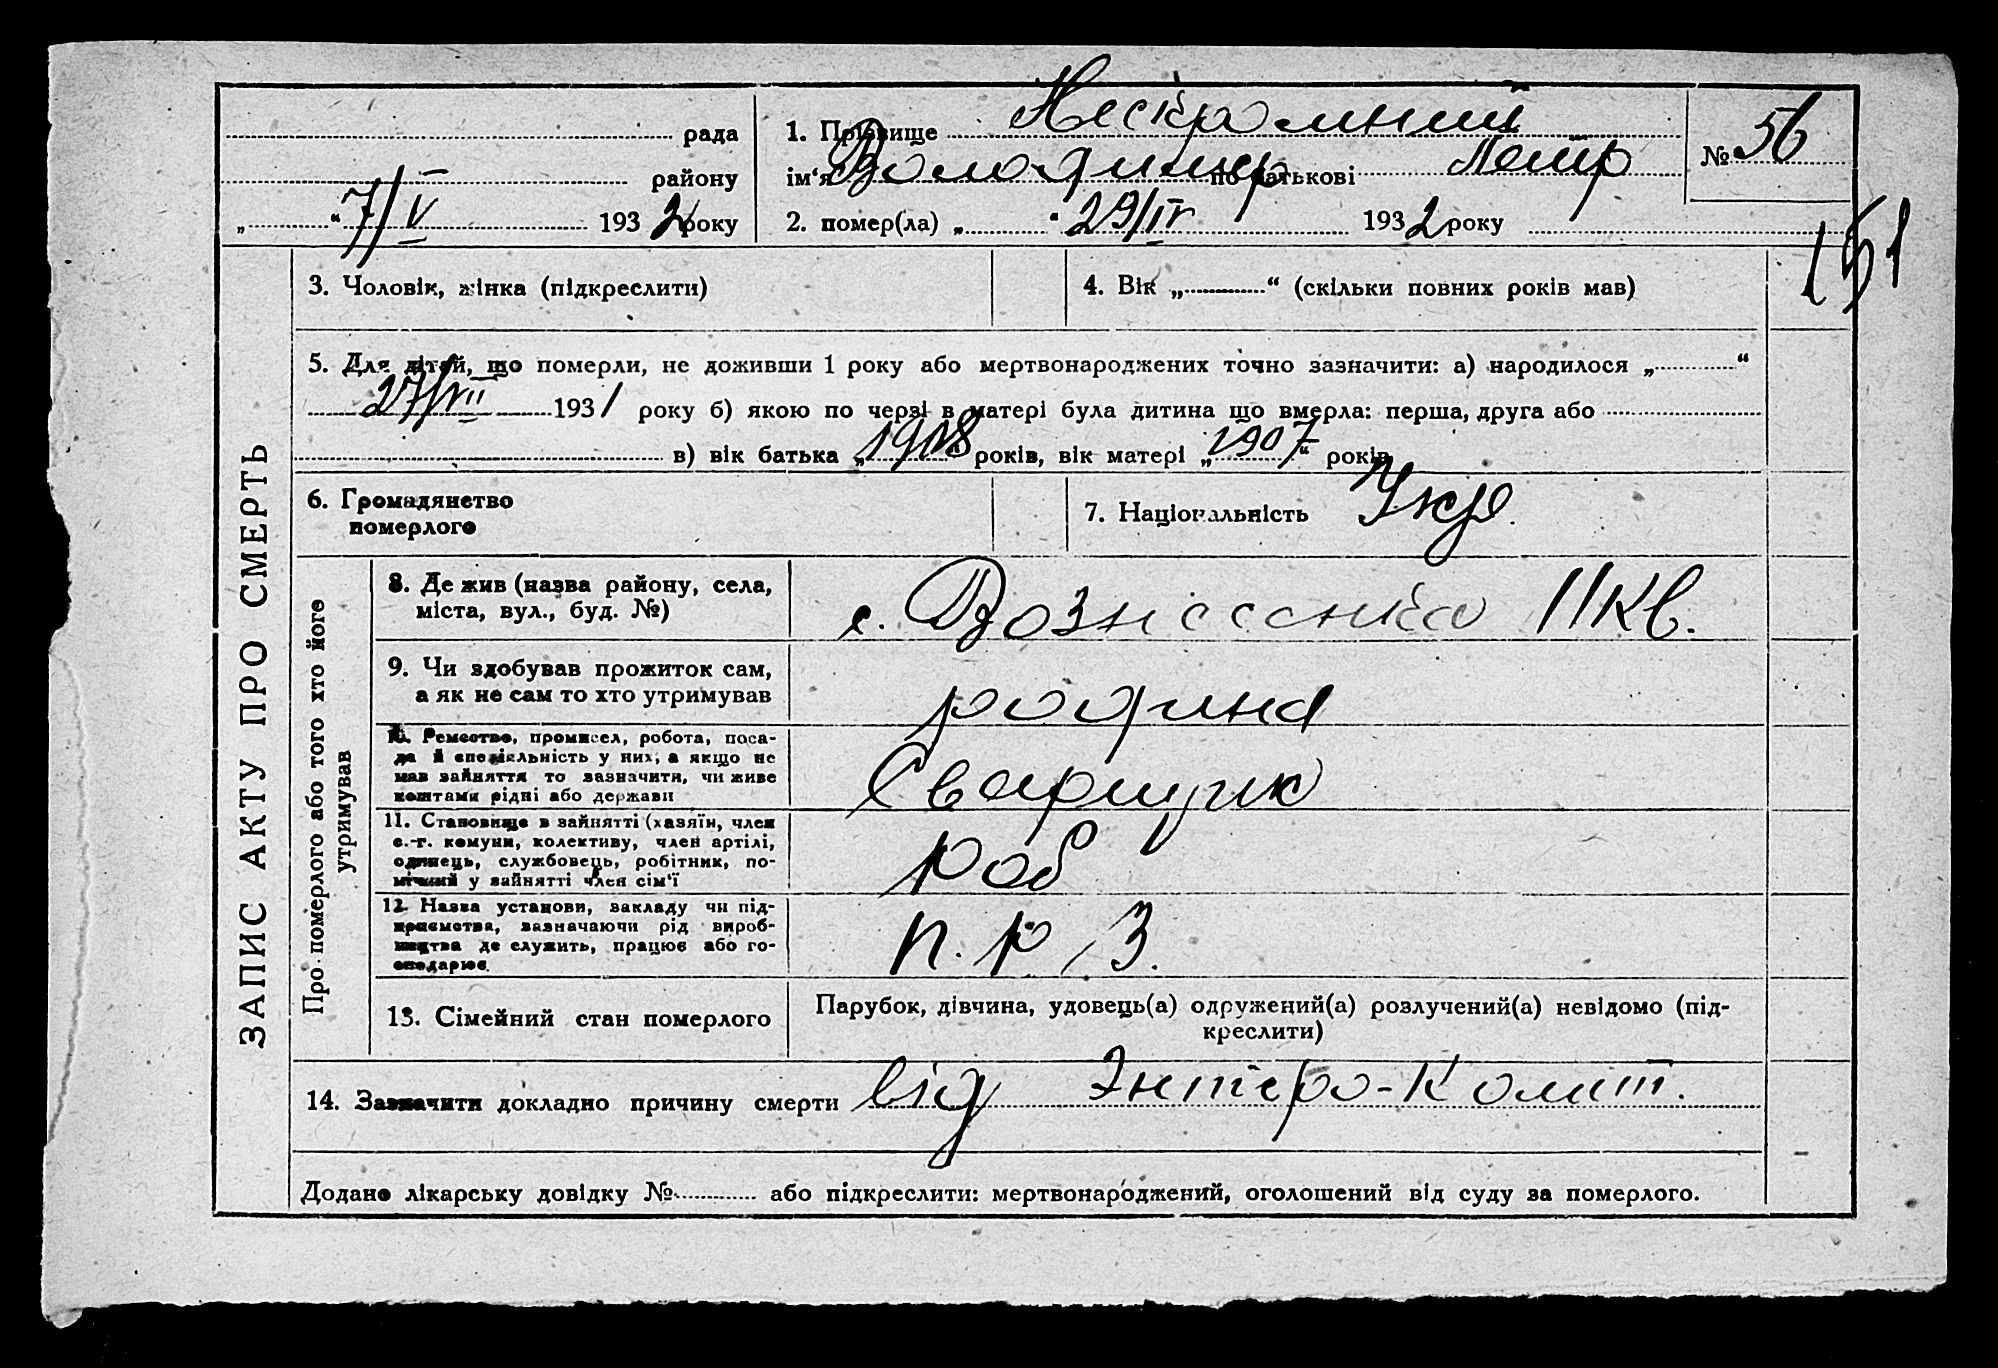 рада
району
„ “ 7/V 1932 року
1. Прізвище Нескромний
ім‘я Володимир по батькові Петр
2. помер(ла) „ “ 29/IV 1932 року
№ 56
151
ЗАПИС АКТУ ПРО СМЕРТЬ
3. Чоловік, жінка (підкреслити)
4. Вік „ “ (скільки повних років мав)
5. Для дітей, що померли, не доживши 1 року або мертвонароджених точно зазначити: а) народилося „ “
27/VII 1931 року б) якою по черзі в матері була дитина що вмерла: перша, друга або
в) вік батька „1908 років, вік матері „1907“ років
6. Громадянство
померлого
7. Національність Укр.
Про померлого або того хто його
утримував
8. Де жив (назва району, села,
міста, вул., буд. №)
с. Вознісенка 11 кв.
9. Чи здобував прожиток сам,
а як не сам то хто утримував
родина
10. Ремество, промисел, робота, поса-
да й спеціяльність у них, а якщо не
мав зайняття то зазначити, чи живе
коштами рідні або держави
Сварщик
11. Становище в зайнятті (хазяїн, член
с.-г. комуни, колективу, член артілі,
одинець, службовець, робітник, по-
мічний у зайнятті член сім‘ї
роб
12. Назва установи, закладу чи під-
приємства, зазначаючи рід вироб-
ництва де служить, працює або го-
сподарює.
п. р. З.
13. Сімейний стан померлого
Парубок, дівчина, удовець(а) одружений(а) розлучений(а) невідомо (під-
креслити)
14. Зазначити докладно причину смерти від Энтеро-Колит.
Додано лікарську довідку № або підкреслити: мертвонароджений, оголошений від суду за померлого.